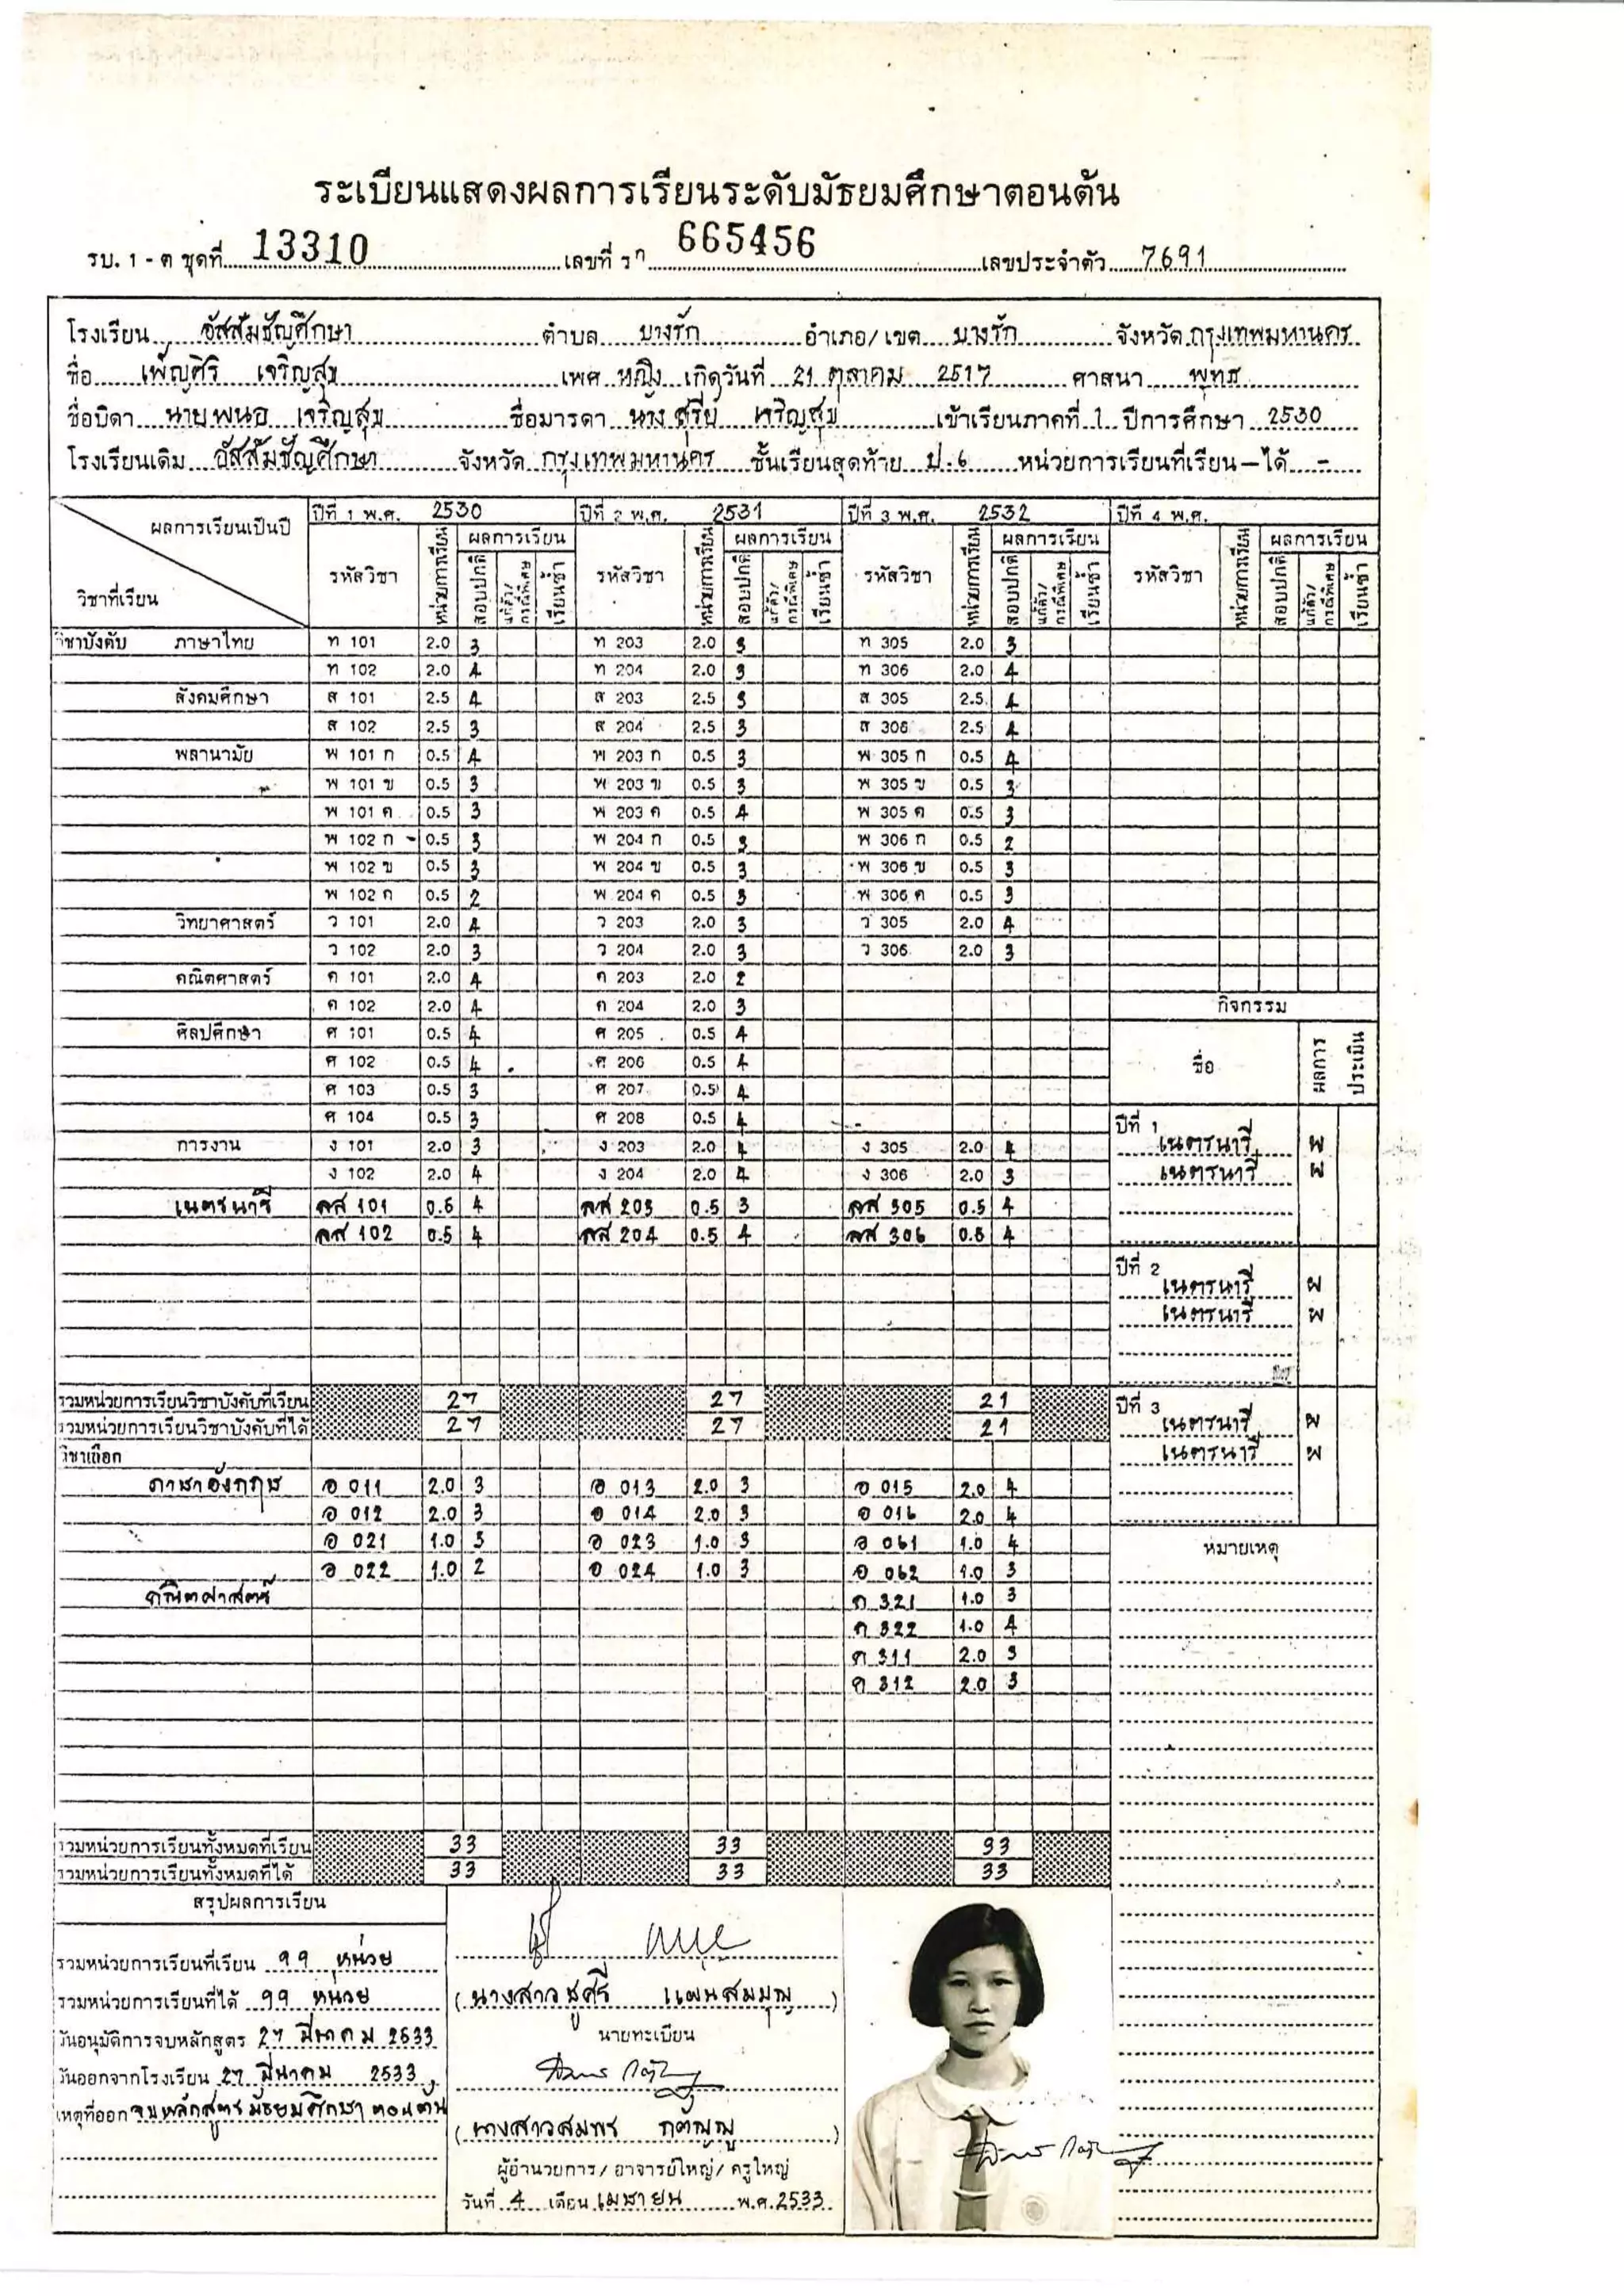 ระเบียนแสดงผลการเรียนระดับมัธยมศึกษาตอนต้น
รบ. 1 - ต ชุดที่ 13310 เลขที่ 665456 เลขประจำตัว 7691
โรงเรียน อัสสัมชัญศึกษา ตำบล บางรัก อำเภอ/เขต บางรัก จังหวัด กรุงเทพมหานคร
ชื่อ เพ็ญศิริ เจริญสุข เพศ หญิง เกิดวันที่ 21 ตุลาคม 2517 ศาสนา พุทธ
ชื่อบิดา นายพนอ เจริญสุข ชื่อมารดา นาง สุรีย์ เจริญสุข เข้าเรียนภาคที่ 1 ปีการศึกษา 2530
โรงเรียนเดิม อัสสัมชัญศึกษา จังหวัด กรุงเทพมหานคร ชั้นเรียนสุดท้าย ป.6 หน่วยการเรียนที่เรียน-ได้ -
ผลการเรียนเป็นปี ปีที่ 1 พ.ศ. 2530 ปีที่ 2 พ.ศ. 2531 ปีที่ 3 พ.ศ. 2532 ปีที่ 4 พ.ศ.
วิชาที่เรียน รหัสวิชา หน่วยการเรียน ผลการเรียน สอบปกติ แก้ตัว/กรณีพิเศษ เรียนซ้ำ รหัสวิชา หน่วยการเรียน ผลการเรียน สอบปกติ แก้ตัว/กรณีพิเศษ เรียนซ้ำ รหัสวิชา หน่วยการเรียน ผลการเรียน สอบปกติ แก้ตัว/กรณีพิเศษ เรียนซ้ำ รหัสวิชา หน่วยการเรียน ผลการเรียน สอบปกติ แก้ตัว/กรณีพิเศษ เรียนซ้ำ
วิชาบังคับ ภาษาไทย ท 101 2.0 3 ท 203 2.0 3 ท 305 2.0 3
ท 102 2.0 4 ท 204 2.0 3 ท 306 2.0 4
สังคมศึกษา ส 101 2.5 4 ส 203 2.5 3 ส 305 2.5 4
ส 102 2.5 3 ส 204 2.5 3 ส 306 2.5 4
พลานามัย พ 101 ก 0.5 4 พ 203 ก 0.5 3 พ 305 ก 0.5 4
พ 101 ข 0.5 3 พ 203 ข 0.5 3 พ 305 ข 0.5 3
พ 101 ค 0.5 3 พ 203 ค 0.5 4 พ 305 ค 0.5 3
พ 102 ก 0.5 3 พ 204 ก 0.5 3 พ 306 ก 0.5 2
พ 102 ข 0.5 3 พ 204 ข 0.5 3 พ 306 ข 0.5 3
พ 102 ค 0.5 2 พ 204 ค 0.5 3 พ 306 ค 0.5 3
วิทยาศาสตร์ ว 101 2.0 4 ว 203 2.0 3 ว 305 2.0 4
ว 102 2.0 3 ว 204 2.0 3 ว 306 2.0 3
คณิตศาสตร์ ค 101 2.0 4 ค 203 2.0 2
ค 102 2.0 4 ค 204 2.0 3 กิจกรรม
ศิลปศึกษา ศ 101 0.5 4 ศ 205 0.5 4 ชื่อ ผลการประเมิน
ศ 102 0.5 4 ศ 206 0.5 4
ศ 103 0.5 3 ศ 207 0.5 4
ศ 104 0.5 3 ศ 208 0.5 4 ปีที่ 1
การงาน ง 101 2.0 3 ง 203 2.0 4 ง 305 2.0 4 เนตรนารี ผ
ง 102 2.0 4 ง 204 2.0 4 ง 306 2.0 3 เนตรนารี ผ
เนตรนารี ลส 101 0.5 4 ลส 203 0.5 3 ลส 305 0.5 4
ลส 102 0.5 4 ลส 204 0.5 4 ลส 306 0.5 4
ปีที่ 2
เนตรนารี ผ
เนตรนารี ผ
รวมหน่วยการเรียนวิชาบังคับที่เรียน 27 27 21 ปีที่ 3
รวมหน่วยการเรียนวิชาบังคับที่ได้ 27 27 21 เนตรนารี ผ
วิชาเลือก เนตรนารี ผ
ภาษาอังกฤษ อ 011 2.0 3 อ 013 2.0 3 อ 015 2.0 4
อ 012 2.0 3 อ 014 2.0 3 อ 016 2.0 4
อ 021 1.0 3 อ 023 1.0 3 อ 061 1.0 4 หมายเหตุ
อ 022 1.0 2 อ 024 1.0 3 อ 062 1.0 3
คณิตศาสตร์ ค 321 1.0 3
ค 322 1.0 4
ค 311 2.0 3
ค 312 2.0 3
รวมหน่วยการเรียนทั้งหมดที่เรียน 33 33 33
รวมหน่วยการเรียนทั้งหมดที่ได้ 33 33 33
สรุปผลการเรียน
รวมหน่วยการเรียนที่เรียน 99 หน่วย
รวมหน่วยการเรียนที่ได้ 99 หน่วย
วันอนุมัติการจบหลักสูตร 27 มีนาคม 2533
วันออกจากโรงเรียน 27 มีนาคม 2533
เหตุที่ออก จบหลักสูตรมัธยมศึกษาตอนต้น
(นางสาวชูศรี แผนสมบุญ)
นายทะเบียน
(นางสาวสมพร กตัญญู)
ผู้อำนวยการ/อาจารย์ใหญ่/ครูใหญ่
วันที่ 4 เดือน เมษายน พ.ศ. 2533